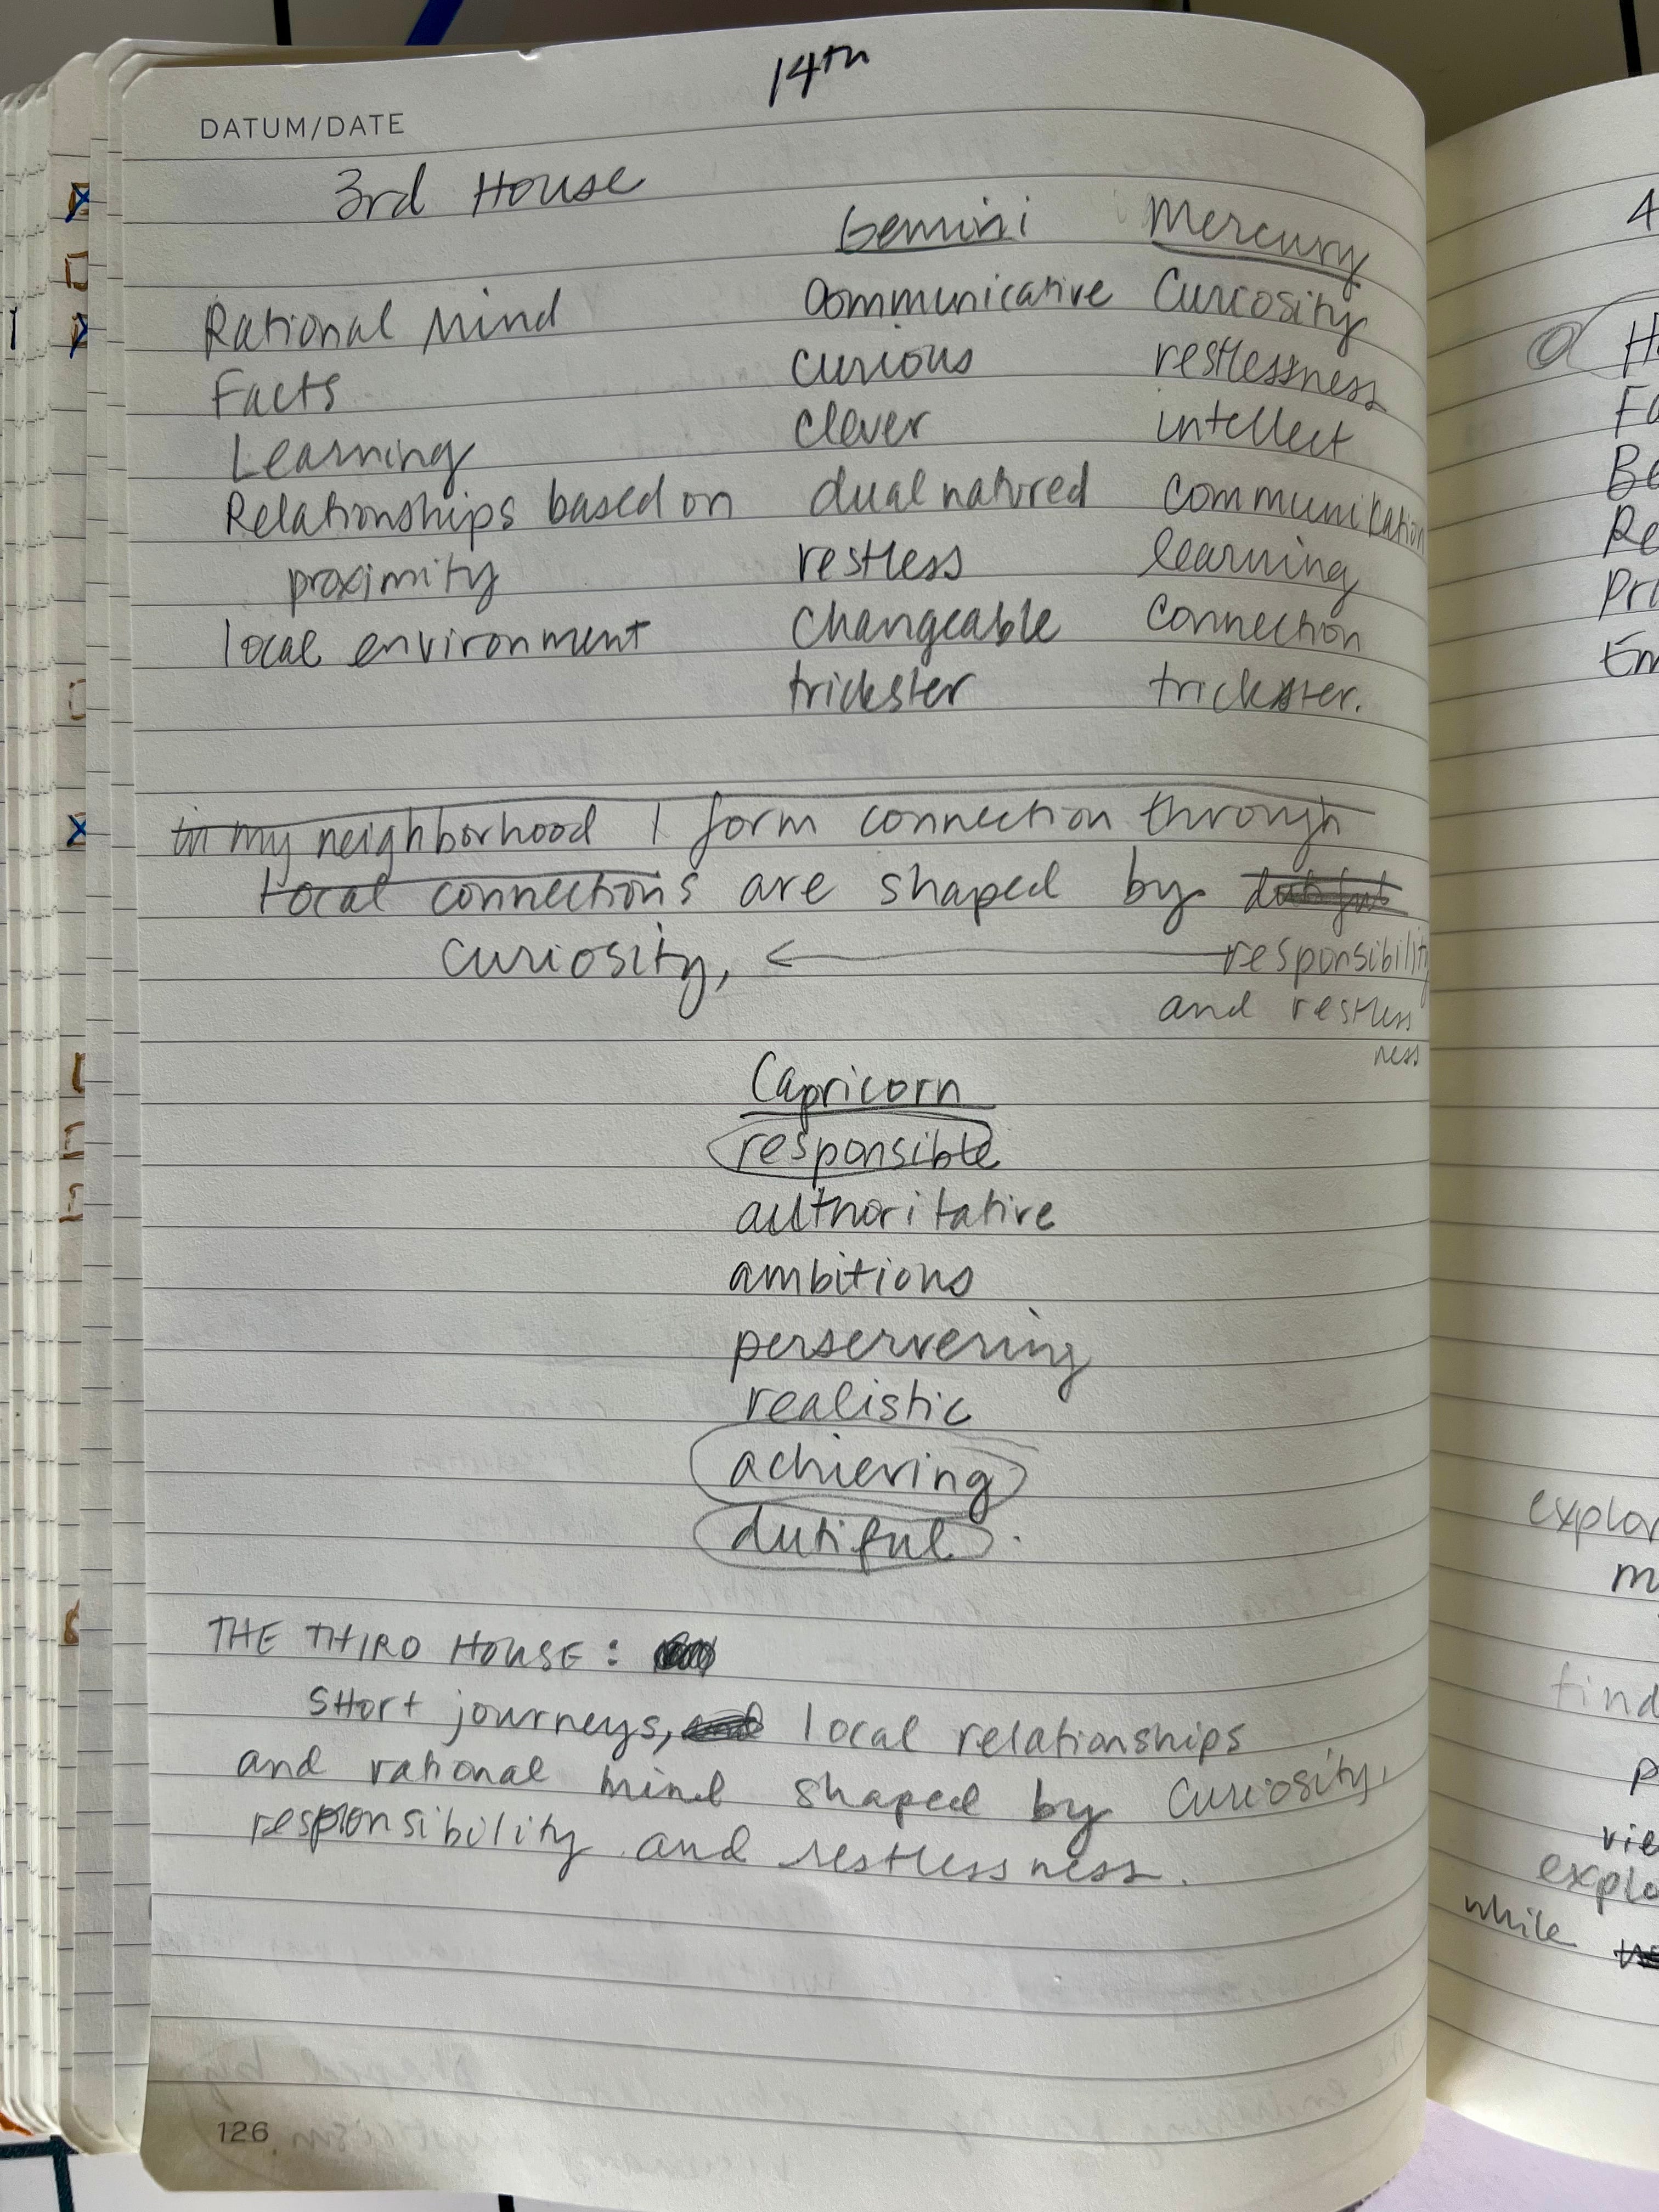 14th
DATUM/DATE
3rd House
Gemini Mercury
Rational Mind communicative Curiosity
Facts curious restlessness
Learning clever intellect
Relationships based on dual natured communication
proximity restless learning
local environment changeable connection
trickster trickster.
in my neighborhood I form connection through
local connections are shaped by dutiful
curiosity, ← responsibility
and restless
ness
Capricorn
responsible
authoritative
ambitions
perservering
realistic
achieving
dutiful.
THE THIRD HOUSE:
Short journeys, and local relationships
and rational mind shaped by Curiosity,
responsibility and restlessness.
126
4
H
Fa
Be
Re
Pri
Em
explor
m
find
p
vie
explo
while